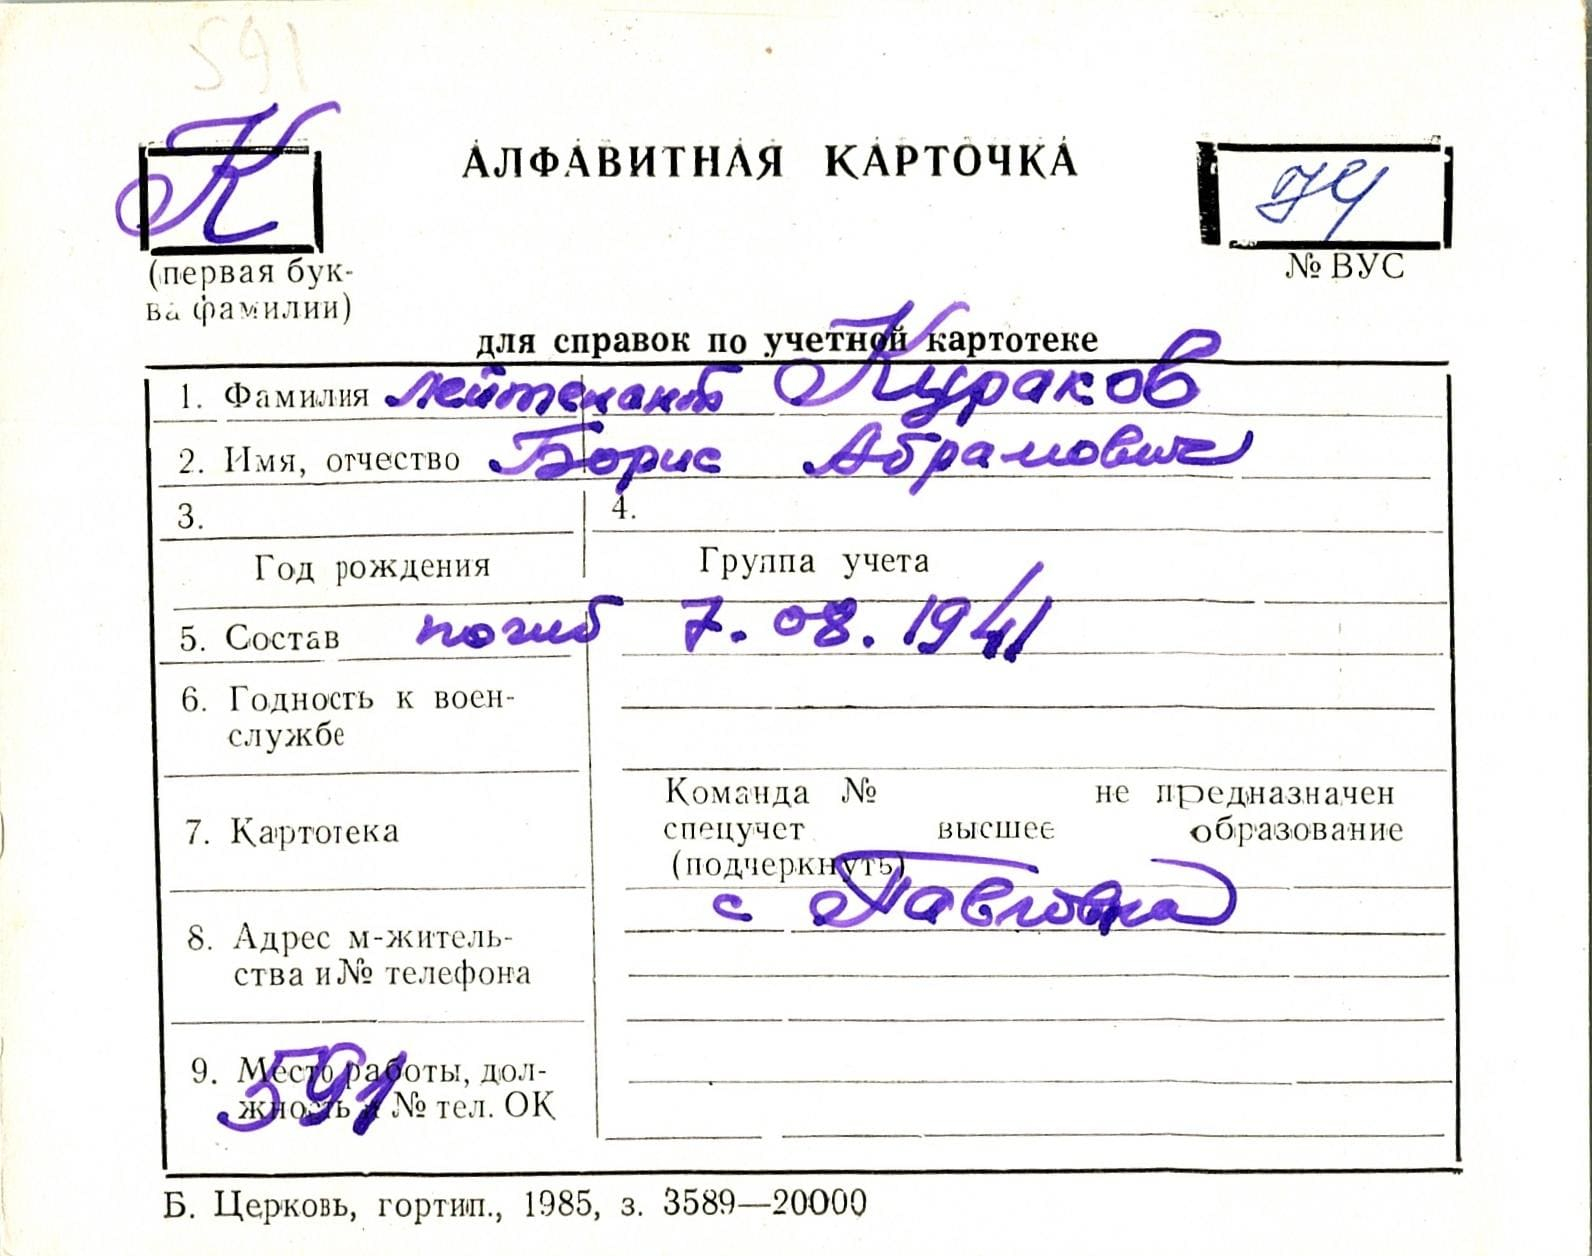 591
К
АЛФАВИТНАЯ КАРТОЧКА
74
(первая бук-
ва фамилии)
№ ВУС
для справок по учетной картотеке
1. Фамилия лейтенант Кураков
2. Имя, отчество Борис Абрамович
3.
4.
Год рождения
Группа учета
5. Состав погиб 7.08.1941
6. Годность к воен-
службе
7. Картотека
Команда № не предназначен
спецучет высшее образование
(подчеркнуть)
с
8. Адрес м-житель-
ства и № телефона
9. Место работы, дол-
жность и № тел. ОК
591
Б. Церковь, гортип., 1985, з. 3589—20000